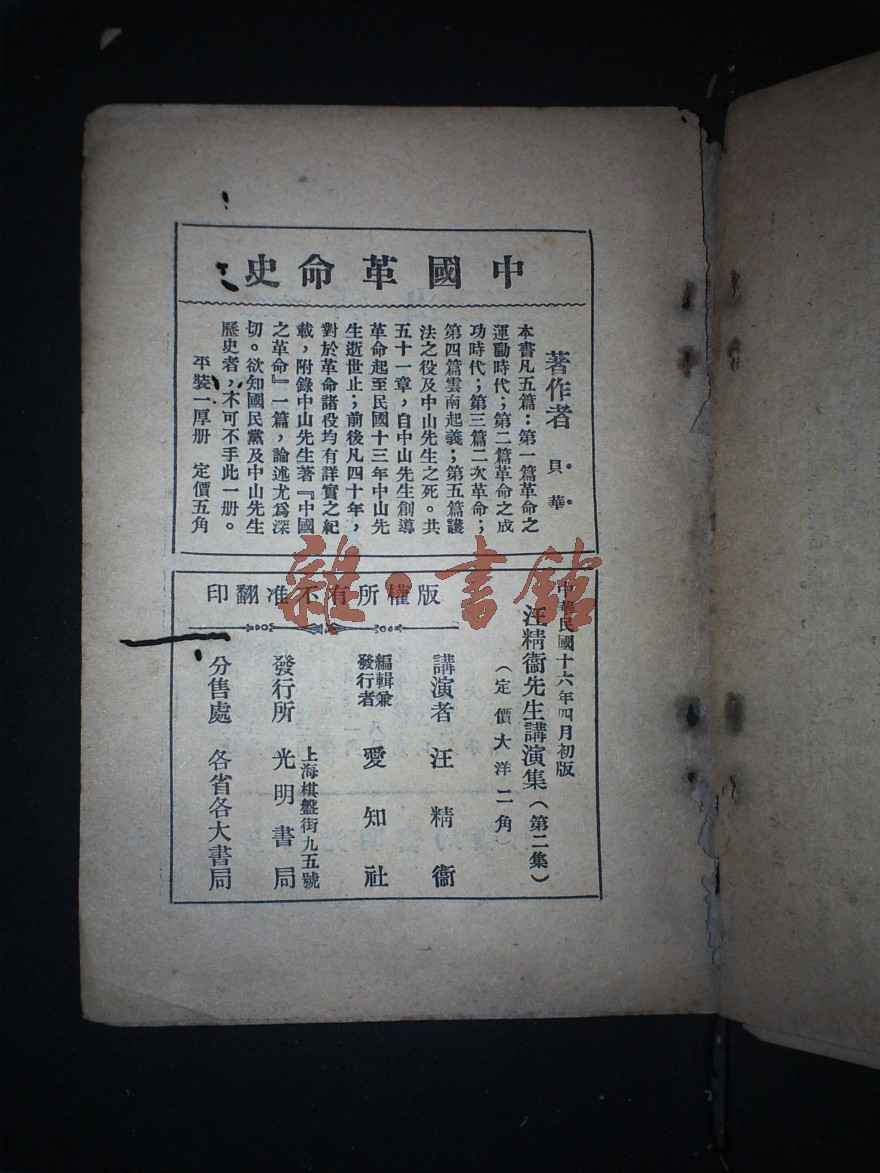 中國革命史
著作者 貝華
本書凡五篇：第一篇革命之
運動時代；第二篇革命之成
功時代；第三篇二次革命；
第四篇雲南起義；第五篇護
法之役及中山先生之死。共
五十一章，自中山先生創導
革命起至民國十三年中山先
生逝世止；前後凡四十年，
對於革命諸役均有詳實之紀
載，附錄中山先生著『中國
之革命』一篇，論述尤爲深
切。欲知國民黨及中山先生
歷史者，不可不手此一册。
平裝一厚册 定價五角
版權所有不准翻印
中華民國十六年四月初版
汪精衞先生講演集（第二集）
（定價大洋二角）
講演者 汪精衞
編輯兼發行者 愛知社
上海棋盤街九五號
發行所 光明書局
分售處 各省各大書局
雜·書館